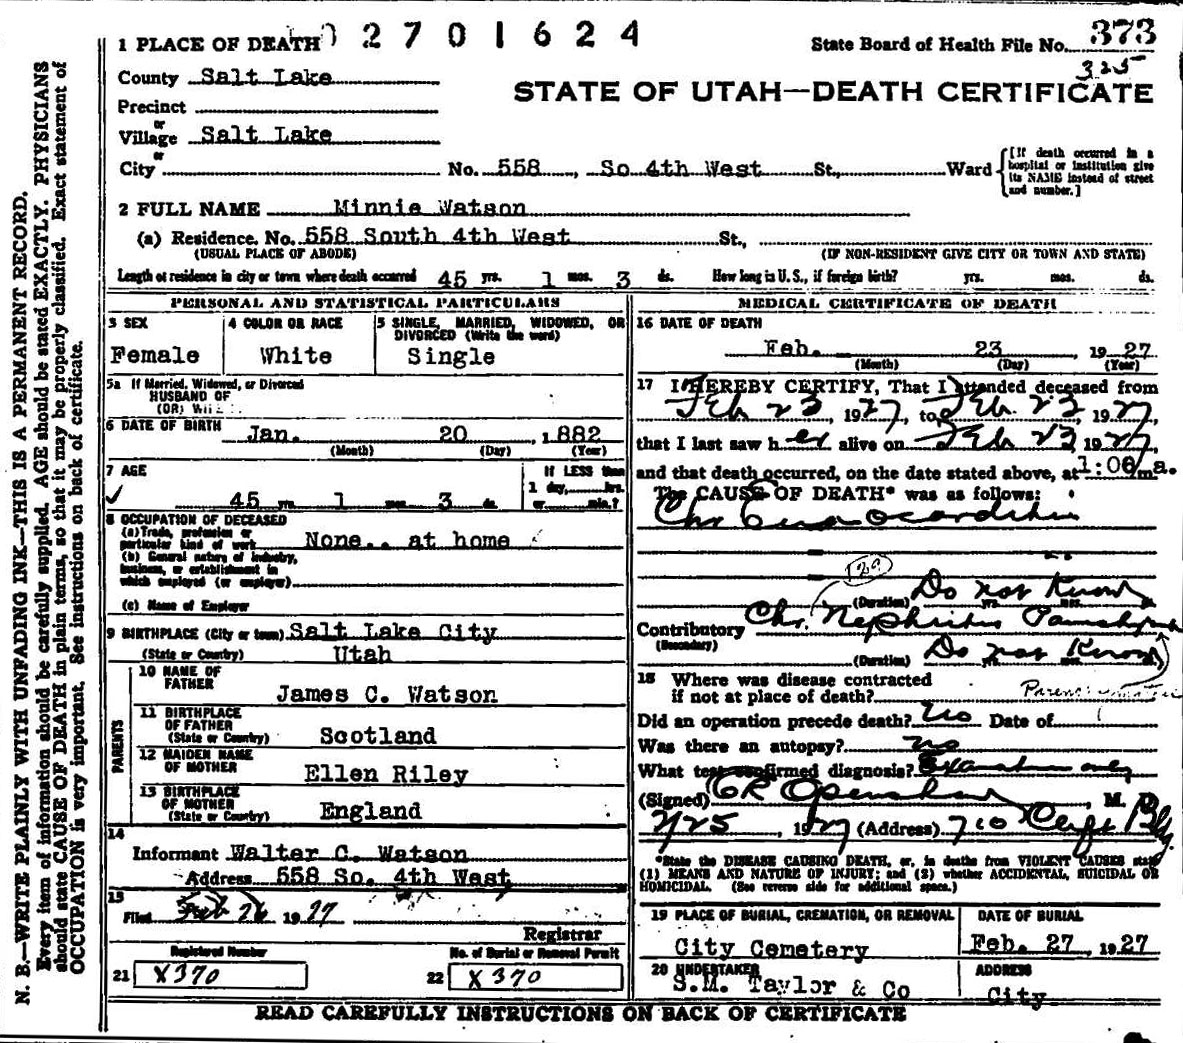 2701624
1 PLACE OF DEATH
State Board of Health File No. 373
325
County Salt Lake
STATE OF UTAH—DEATH CERTIFICATE
Precinct
or
Village Salt Lake
or
City No. 558, So 4th West St., Ward
[If death occurred in a hospital or institution give its NAME instead of street and number.]
2 FULL NAME Minnie Watson
(a) Residence. No. 558 South 4th West St.,
(USUAL PLACE OF ABODE) (IF NON-RESIDENT GIVE CITY OR TOWN AND STATE)
Length of residence in city or town where death occurred 45 yrs. 1 mos. 3 ds. How long in U.S., if foreign birth? yrs. mos. ds.
PERSONAL AND STATISTICAL PARTICULARS
3 SEX
Female
4 COLOR OR RACE
White
5 SINGLE, MARRIED, WIDOWED, OR
DIVORCED (Write the word)
Single
5a If Married, Widowed, or Divorced
HUSBAND OF
(OR) WIFE
6 DATE OF BIRTH Jan. 20, 1882
(Month) (Day) (Year)
7 AGE
45 yrs. 1 mos. 3 ds.
If LESS than
1 day, hrs.
or min.?
8 OCCUPATION OF DECEASED
(a) Trade, profession or
particular kind of work None.. at home
(b) General nature of industry,
business, or establishment in
which employed (or employer)
(c) Name of Employer
9 BIRTHPLACE (City or town) Salt Lake City
(State or Country) Utah
PARENTS
10 NAME OF
FATHER
James C. Watson
11 BIRTHPLACE
OF FATHER
(State or Country) Scotland
12 MAIDEN NAME
OF MOTHER Ellen Riley
13 BIRTHPLACE
OF MOTHER
(State or Country) England
14
Informant Walter C. Watson
Address 558 So. 4th West
15
Filed Feb 26 1927
Registrar
Registered Number
21 X370
No. of Burial or Removal Permit
22 X370
MEDICAL CERTIFICATE OF DEATH
16 DATE OF DEATH
Feb. 23, 1927
(Month) (Day) (Year)
17 I HEREBY CERTIFY, That I attended deceased from
Feb 23 1927, to Feb. 23, 1927,
that I last saw her alive on Feb 23, 1927,
and that death occurred, on the date stated above, at 1:00 a.m.
The CAUSE OF DEATH* was as follows:
Chr Endocarditis
(Duration) Do not Know yrs. mos.
Contributory Chr. Nephritis
(Secondary)
(Duration) Do not Know
18 Where was disease contracted
if not at place of death?
Did an operation precede death? No Date of
Was there an autopsy? no
What test confirmed diagnosis? Examination only
(Signed) CR Openshaw, M. D.
2/25, 1927 (Address) 710 Clift Bldg
*State the DISEASE CAUSING DEATH, or, in deaths from VIOLENT CAUSES state
(1) MEANS AND NATURE OF INJURY; and (2) whether ACCIDENTAL, SUICIDAL OR
HOMICIDAL. (See reverse side for additional space.)
19 PLACE OF BURIAL, CREMATION, OR REMOVAL
City Cemetery
DATE OF BURIAL
Feb. 27, 1927
20 UNDERTAKER
S.M. Taylor & Co
ADDRESS
City
READ CAREFULLY INSTRUCTIONS ON BACK OF CERTIFICATE
N. B.—WRITE PLAINLY WITH UNFADING INK—THIS IS A PERMANENT RECORD.
Every item of information should be carefully supplied. AGE should be stated EXACTLY. PHYSICIANS
should state CAUSE OF DEATH in plain terms, so that it may be properly classified. Exact statement of
OCCUPATION is very important. See instructions on back of certificate.